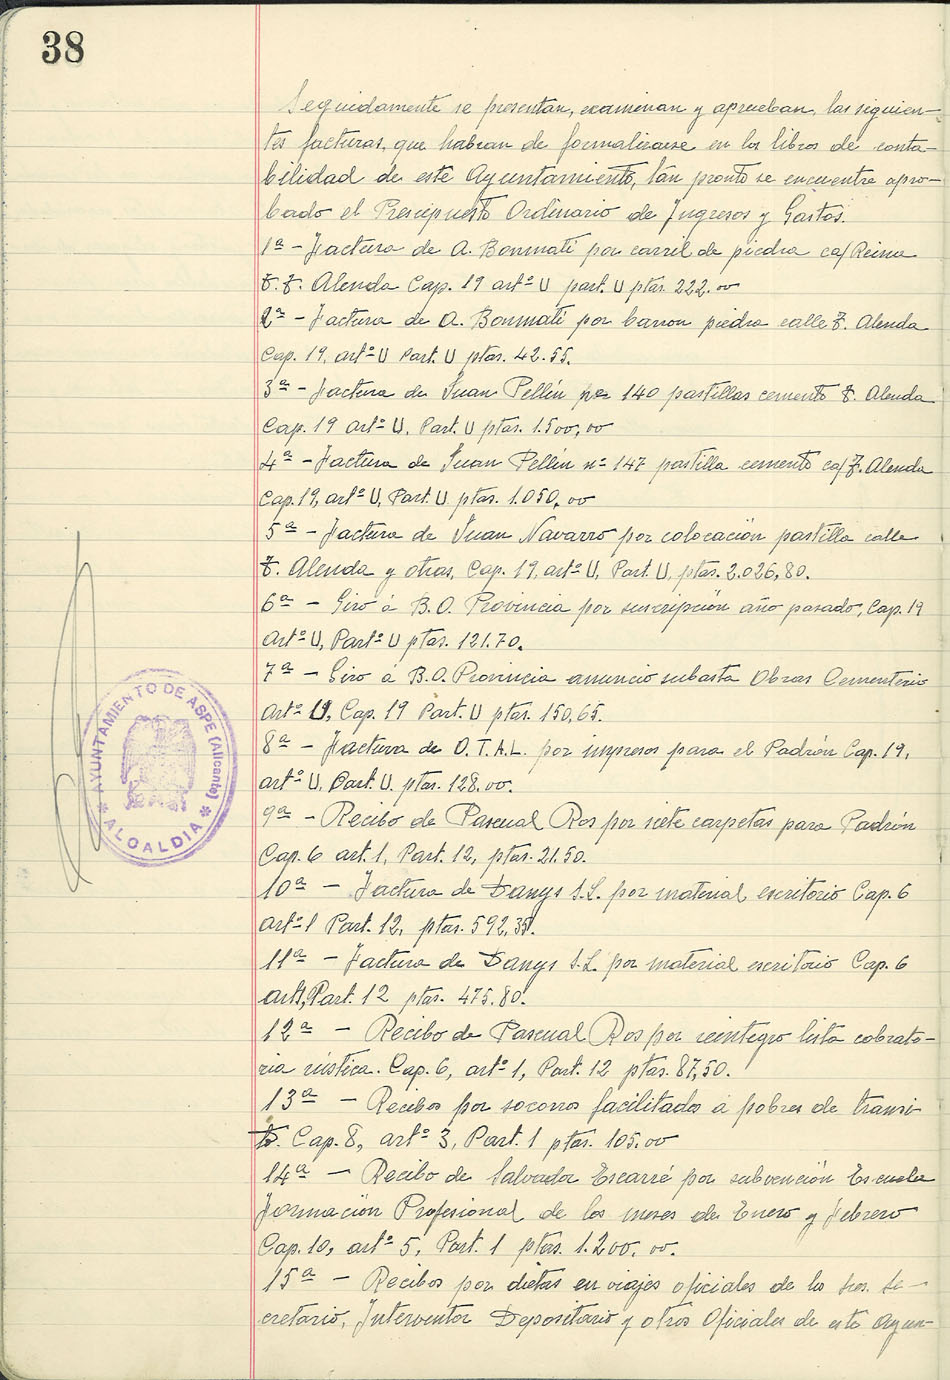 38
Seguidamente se presentan, examinan y aprueban, las siguien-
tes facturas, que habran de formalizarse en los libros de conta-
bilidad de este Ayuntamiento, tan pronto se encuentre apro-
bado el Presupuesto Ordinario de Ingresos y Gastos.
1ª - Factura de A. Bonmati por carril de piedra ca/ Reina
F. F. Alenda Cap. 19 artº U part. U ptas. 222.00
2ª - Factura de A. Bonmati por piedra calle F. Alenda
Cap. 19, artº U Part. U ptas. 42.55.
3ª - Factura de Juan Pellín por 140 pastillas cemento F. Alenda
Cap. 19 artº U, Part. U ptas. 1.500,00
4ª - Factura de Juan Pellín nº 147 pastilla cemento ca/ F. Alenda
Cap. 19, artº U, Part. U ptas. 1.050,00
5ª - Factura de Juan Navarro por colocación pastilla calle
F. Alenda y otras, Cap. 19, artº U, Part. U, ptas. 2.026,80.
6ª - Giro á B.O. Provincia por suscripción año pasado, Cap. 19
Artº U, Partº U ptas. 121.70.
7ª - Giro á B.O. Provincia anuncio subasta Obras Cementerio
Artº U, Cap. 19 Part. U ptas. 150,65.
8ª - Factura de O.T.A.L. por impresos para el Padrón Cap. 19,
artº U, Part. U. ptas. 128.00.
9ª - Recibo de Pascual Ros por siete carpetas para Padrón
Cap. 6 art. 1, Part. 12, ptas. 21.50.
10ª - Factura de Danys S.L. por material escritorio Cap. 6
artº 1 Part. 12, ptas. 592,35.
11ª - Factura de Danys S.L. por material escritorio Cap. 6
artº 1, Part. 12 ptas. 475.80.
12ª - Recibo de Pascual Ros por reintegro lista cobrato-
ria rústica. Cap. 6, artº 1, Part. 12 ptas. 87,50.
13ª - Recibos por socorros facilitados a pobres de transi-
to. Cap. 8, artº 3, Part. 1 ptas. 105.00
14ª - Recibo de Salvador Escarré por subvención Escuela
Formación Profesional de los meses de Enero y Febrero
Cap. 10, artº 5, Part. 1 ptas. 1.200.00.
15ª - Recibos por dietas en viajes oficiales de los Sres. Se-
cretario, Interventor Depositario y otros Oficiales de este Ayun-
AYUNTAMIENTO DE ASPE (Alicante)
* ALCALDIA *